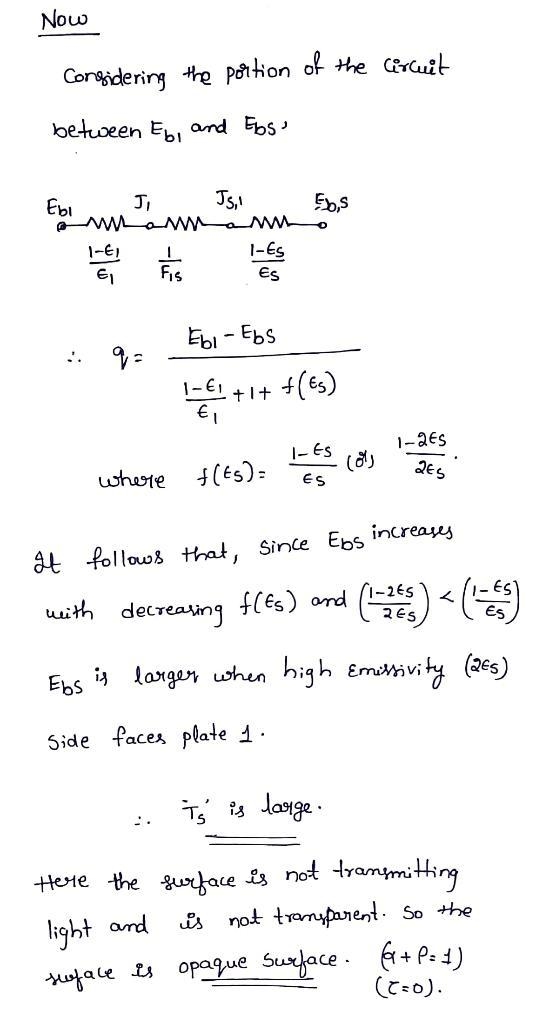 Now
Considering the portion of the circuit
between Eb1 and Ebs,
Eb1 J1 Js,1 Eb,s
1-ϵ1/ϵ1 1/F1s 1-ϵs/ϵs
∴ q = Eb1 - Ebs / (1-ϵ1/ϵ1 + 1 + f(ϵs))
where f(ϵs) = 1-ϵs/ϵs (or) 1-2ϵs/2ϵs.
It follows that, since Ebs increases
with decreasing f(ϵs) and (1-2ϵs/2ϵs) < (1-ϵs/ϵs)
Ebs is larger when high Emissivity (2ϵs)
side faces plate 1.
∴ 'Ts' is large.
Here the surface is not transmitting
light and is not transparent. So the
surface is opaque surface. (α+ρ=1)
(τ=0).